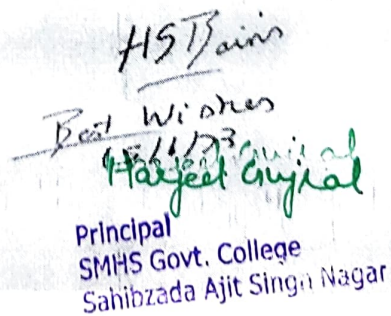 HS Bains
Best Wishes
Harjeet Gujral
Principal
SMHS Govt. College
Sahibzada Ajit Singh Nagar